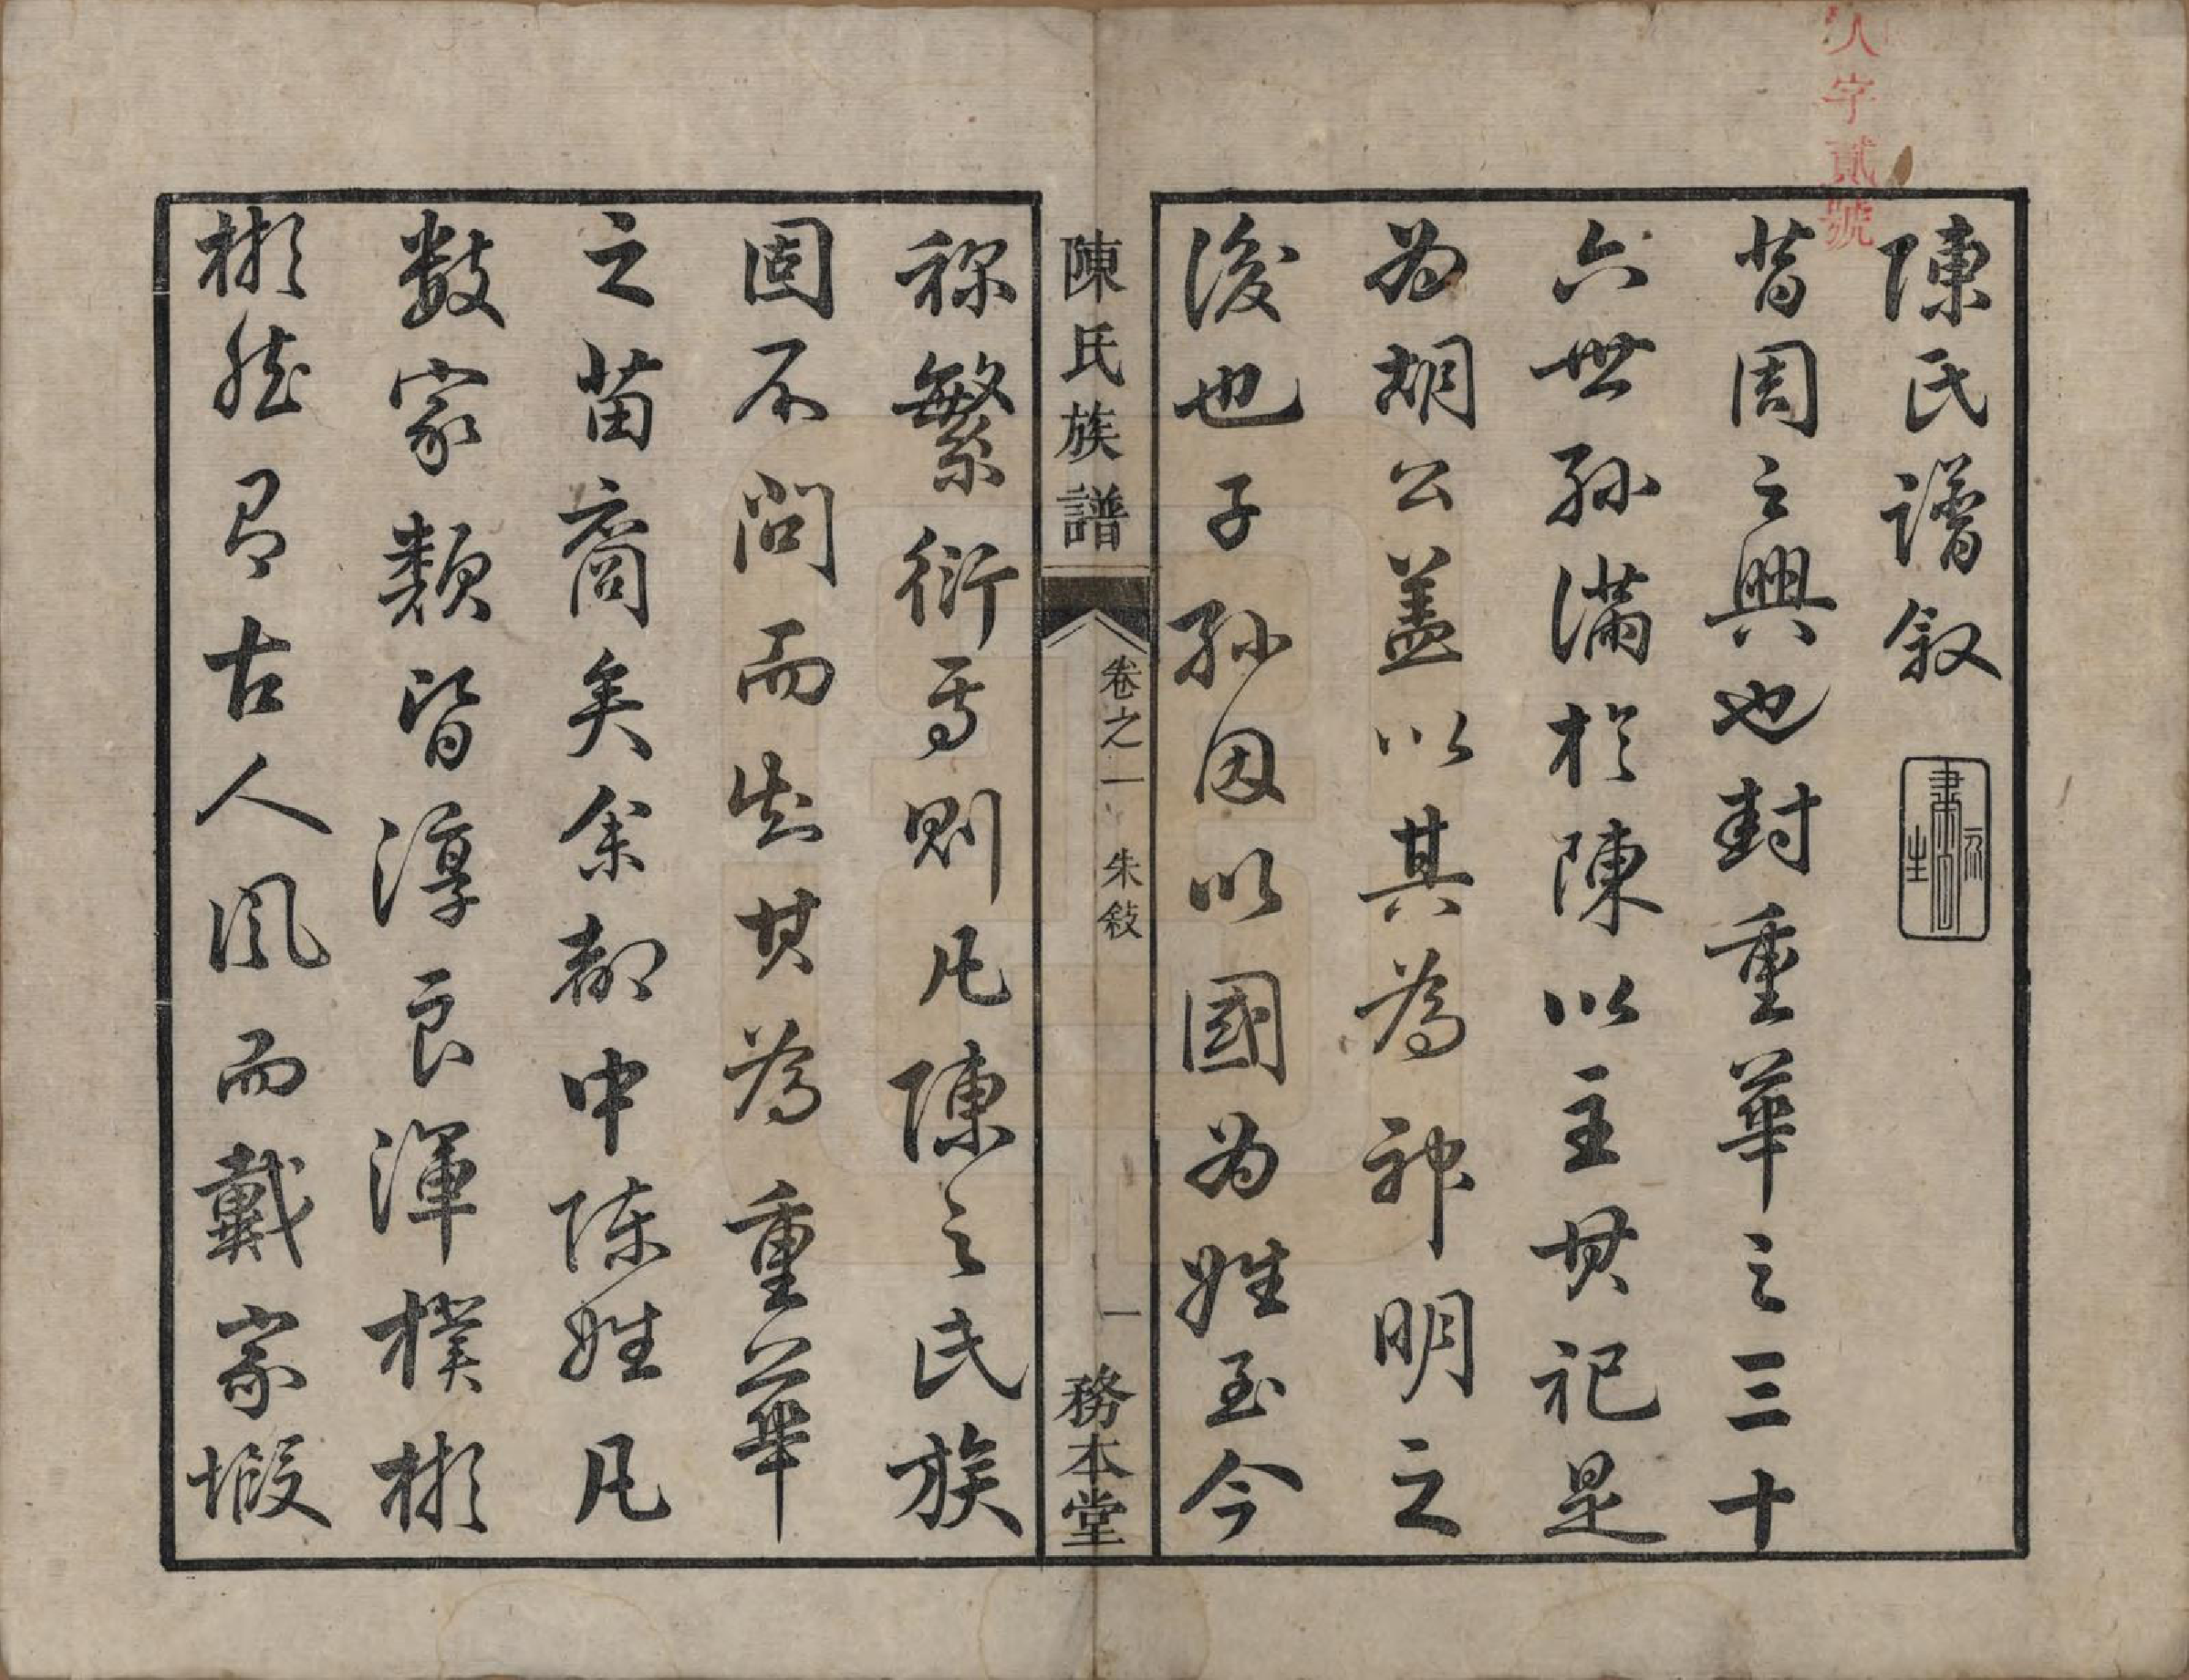 人字貳號
陳氏譜叙
昔周之興也封重華之三十
六世孫滿於陳以主其祀是
為胡公蓋以其為神明之
後也子孫因以國為姓至今
陳氏族譜
卷之一
朱敍
一
務本堂
稱繁衍焉則凡陳之氏族
固不問而知其為重華
之苗裔矣余郡中陳姓凡
數家類皆淳良渾樸彬
彬然有古人風而戴家塅